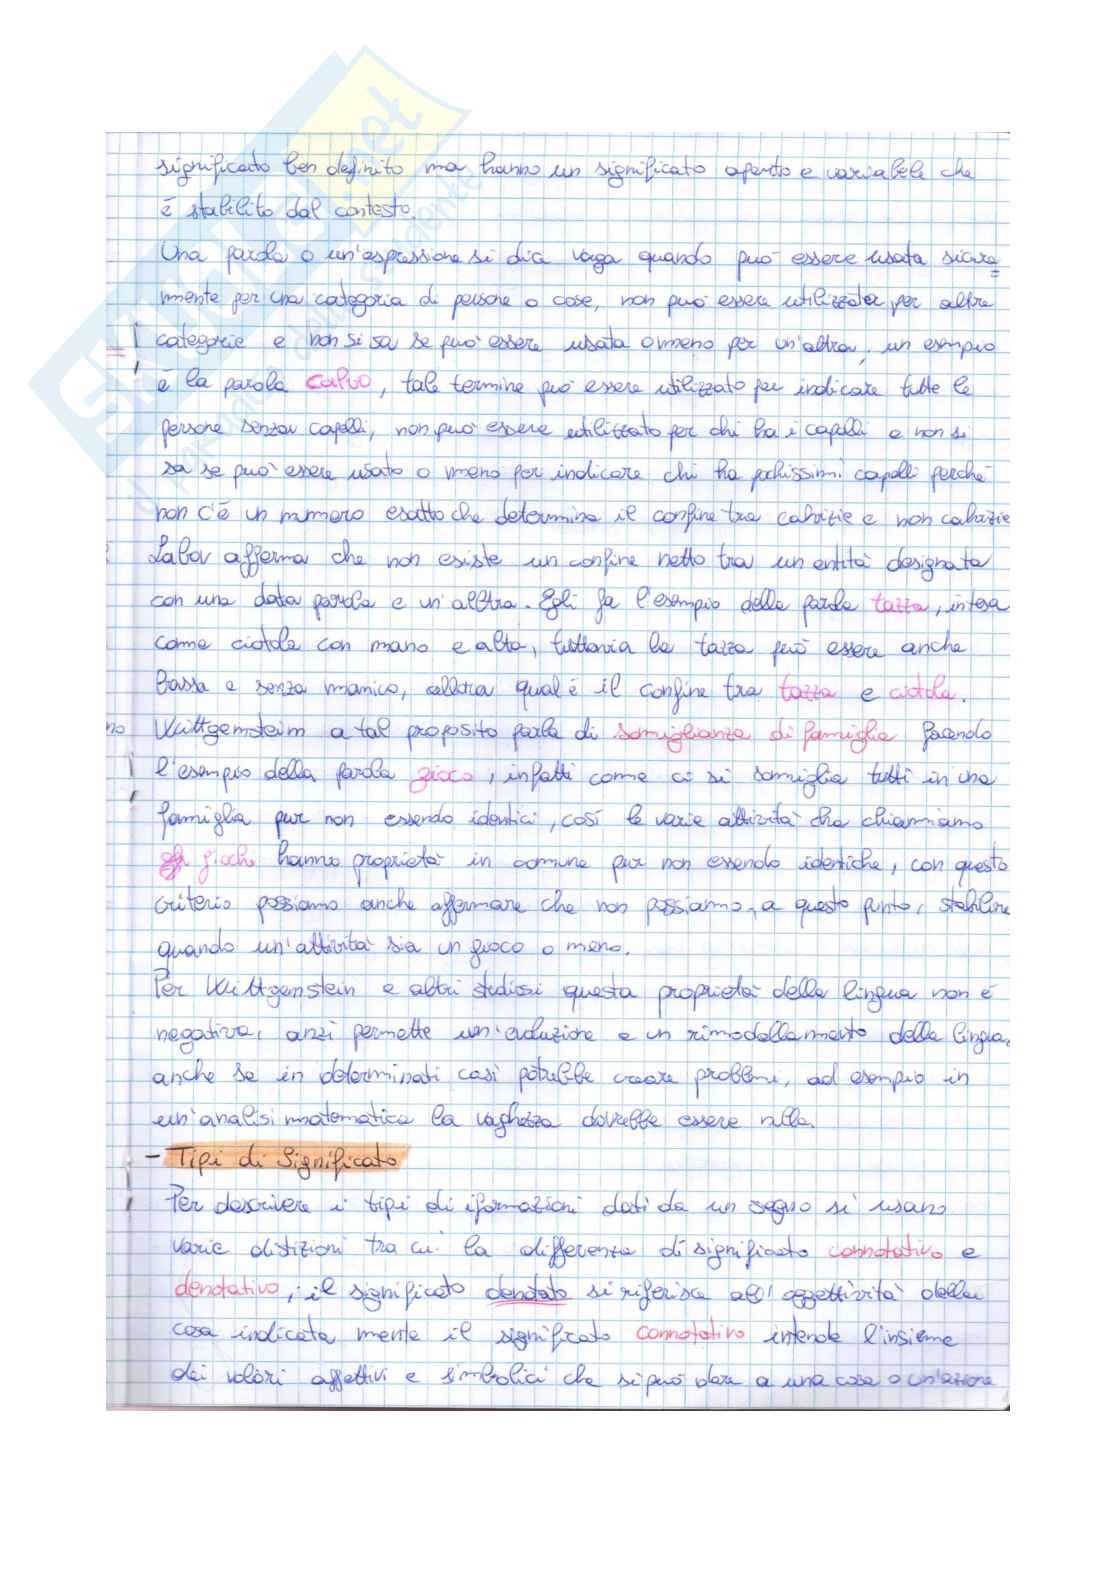 significato ben definito ma hanno un significato aperto e variabele che
è stabilito dal contesto.
Una parola o un'espressione si dice vaga quando può essere usata sicura=
mente per una categoria di persone o cose, non può essere utilizzata per altre
categorie e non si sa se può essere usata o meno per un'altra, un esempio
è la parola calvo, tale termine può essere utilizzato per indicare tutte le
persone senza capelli, non può essere utilizzato per chi ha i capelli e non si
sa se può essere usato o meno per indicare chi ha pochissimi capelli perché
non c'è un numero esatto che determina il confine tra calvizie e non calvizie
Labov afferma che non esiste un confine netto tra un entità designata
con una data parola e un'altra. Egli fa l'esempio della parola tazza, intesa
come ciotola con mano e alta, tuttavia la tazza può essere anche
bassa e senza manico, allora qual è il confine tra tazza e ciotola.
no Wittgenstein a tal proposito parla di somiglianza di famiglia facendo
l'esempio della parola gioco, infatti come ci si somiglia tutti in una
famiglia pur non essendo identici, così le varie attività che chiamiamo
giochi hanno proprietà in comune pur non essendo identiche, con questo
criterio possiamo anche affermare che non possiamo, a questo punto, stabilire
quando un'attività sia un gioco o meno.
Per Wittgenstein e altri studiosi questa proprietà della lingua non è
negativa, anzi permette un'evoluzione e un rimodellamento della lingua,
anche se in determinati casi potrebbe creare problemi, ad esempio in
un'analisi matematica la vaghezza dovrebbe essere nulla.
- Tipi di Significato
Per descrivere i tipi di iformazioni dati da un segno si usano
varie distizioni tra cui la differenza di significato connotativo e
denotativo, il significato denotato si riferisce all'oggettività della
cosa indicata mente il significato connotativo intende l'insieme
dei valori affettivi e simbolici che si può dare a una cosa o un'azione
SKUOLA.net